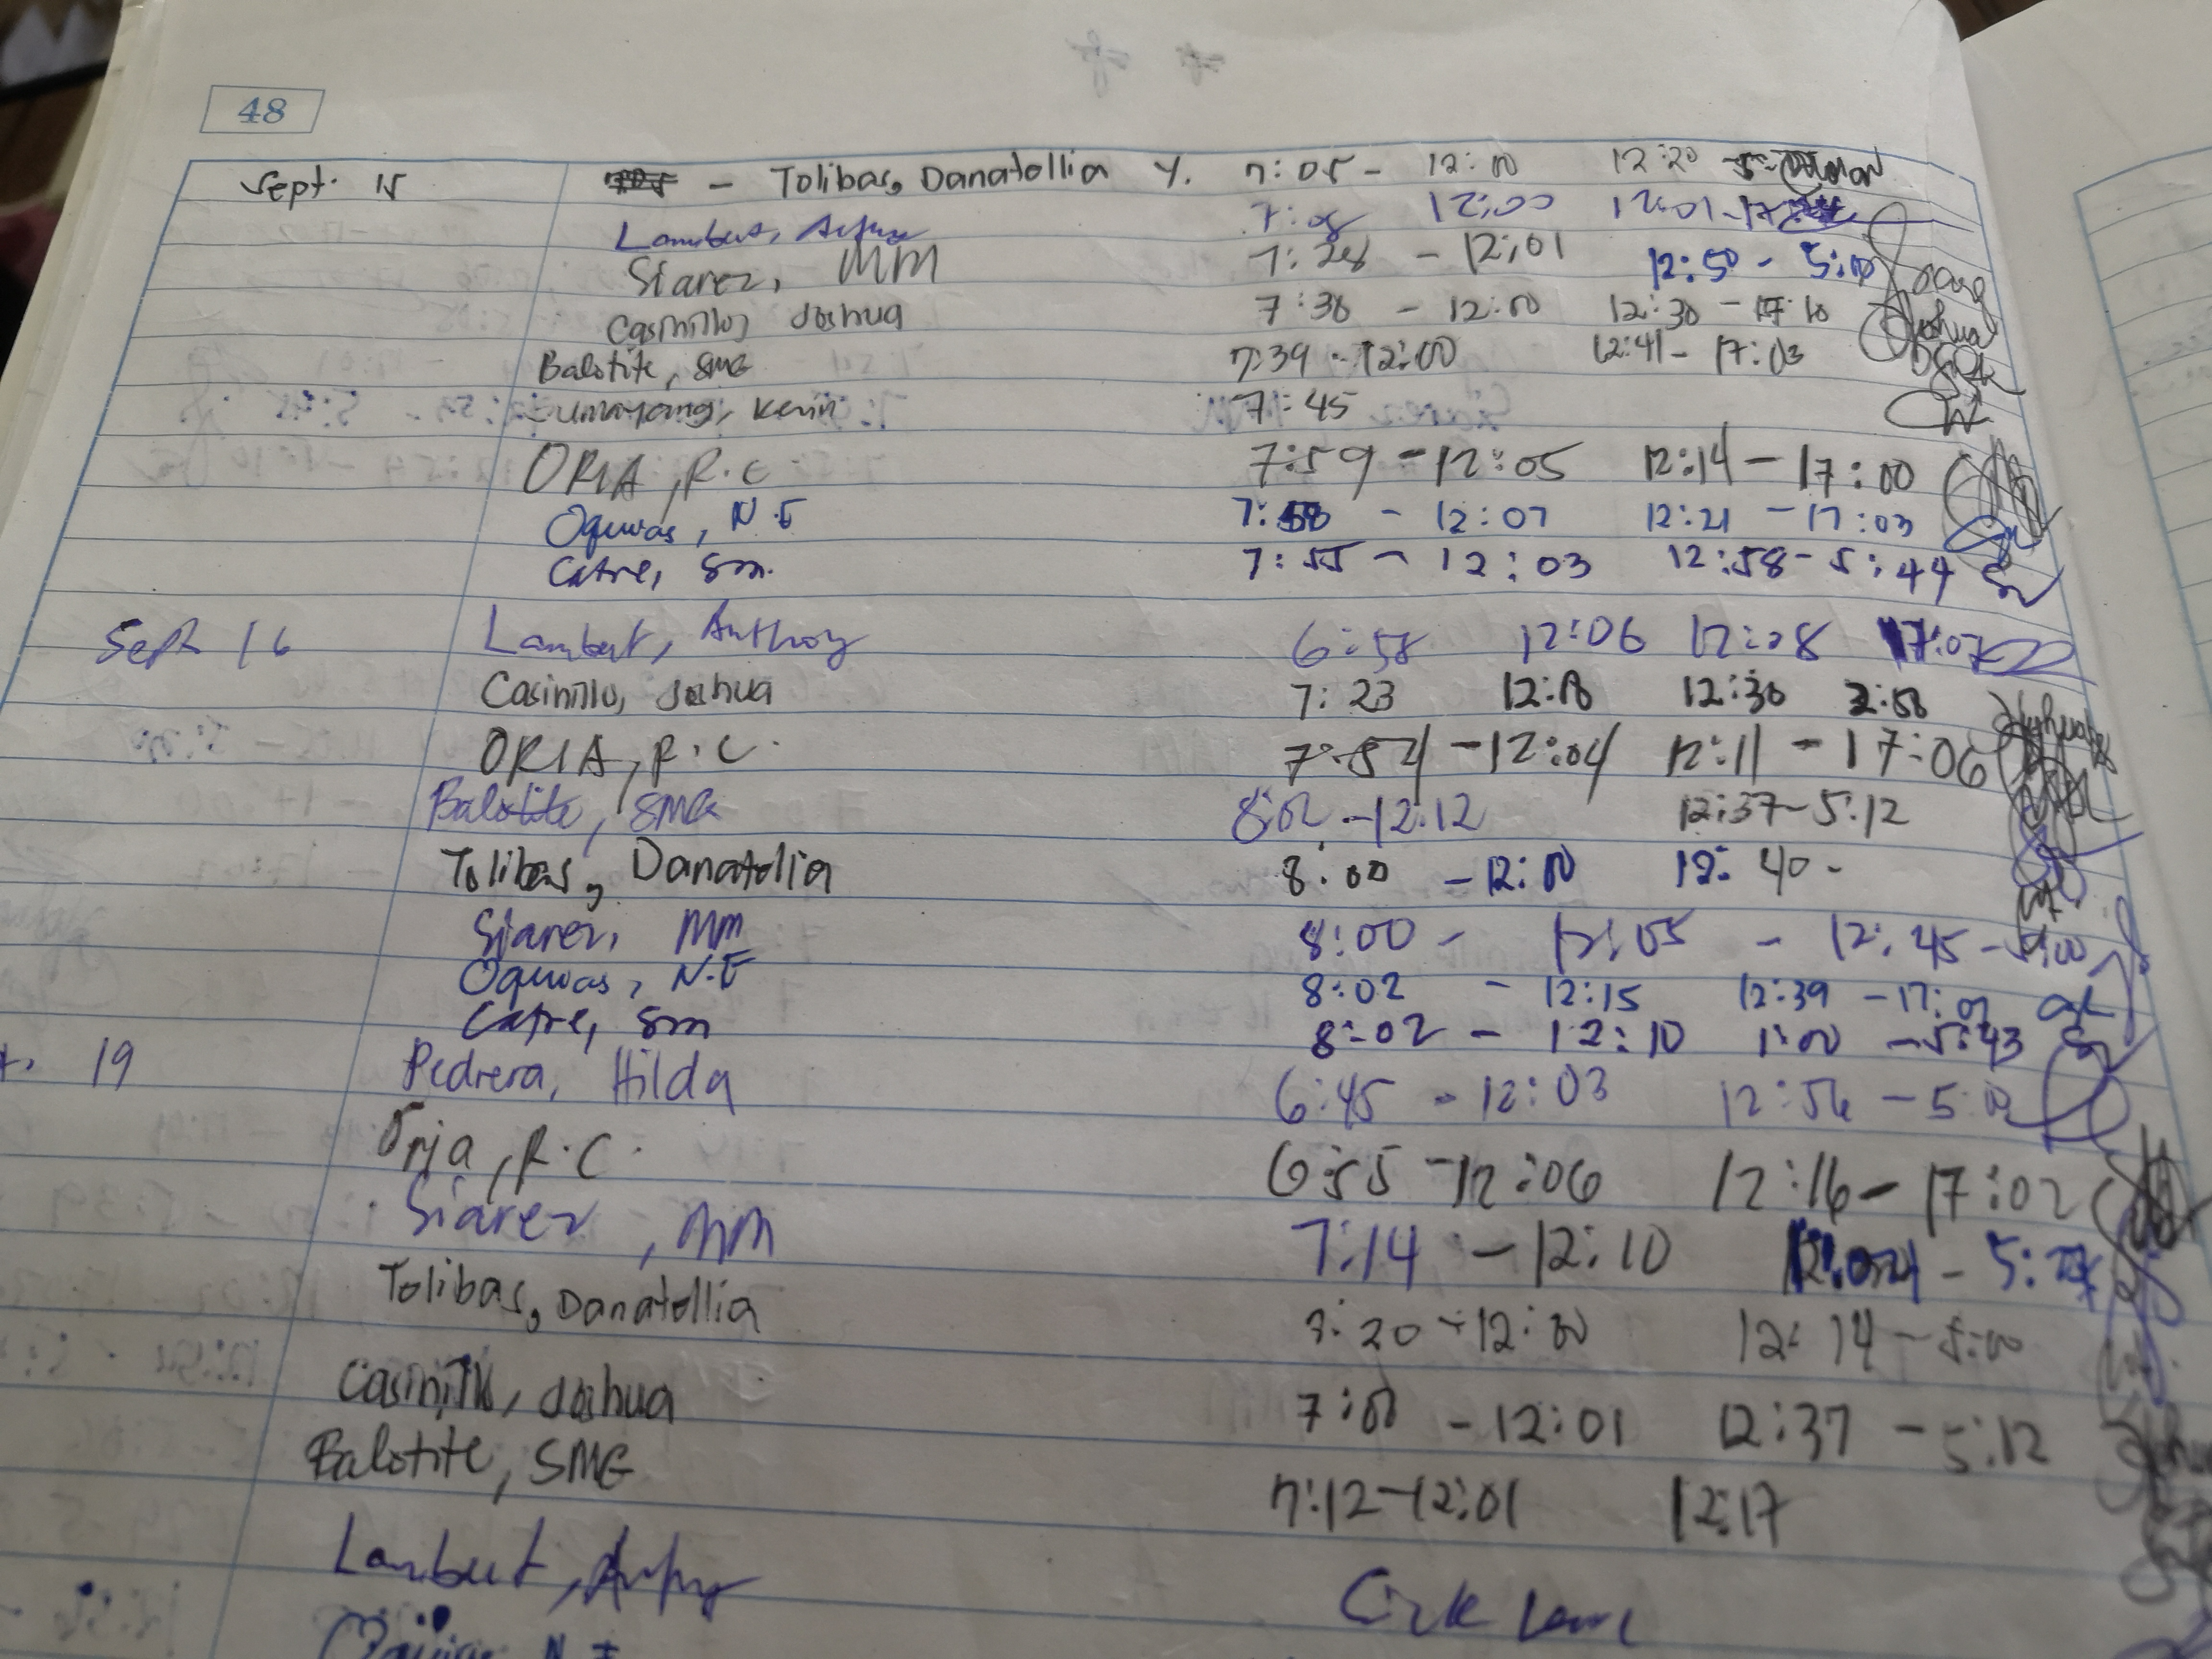 48
Sept. 15 - Tolibas, Danatollia Y. 7:05 - 12:00 12:20
Lambert, 7:08 12:00 12:01 - 17
Siarez, MM 7:28 - 12:01 12:50 - 5:10
Casinillo, Joshua 7:30 - 12:00 12:30 - 17:10 Joshua
Balotite, SMG 7:39 - 12:00 12:41 - 17:03
Kevin 7:45
ORIA, R.C. 7:59 - 12:05 12:14 - 17:00
Oquias, N.E 7: - 12:07 12:21 - 17:03
Catre, Sm. 7:55 - 12:03 12:58 - 5:44
Sept 16 Lambert, Anthony 6:58 12:06 12:08 17:07
Casinillo, Joshua 7:23 12:18 12:30 2:58
ORIA, R.C. 7:54 - 12:04 12:11 - 17:06
Balotite, SMG 8:02 - 12:12 12:37 - 5:12
Tolibas, Danatollia 8:00 - 12:00 12:40 -
Siarez, MM 8:00 - 12:05 - 12:45 - 5:00
Oquias, N.E 8:02 - 12:15 12:39 - 17:02
Catre, Sm 8:02 - 12:10 1:00 - 5:43
t. 19 Pedrera, Hilda 6:45 - 12:03 12:56 - 5:
Oria, R.C. 6:55 - 12:06 12:16 - 17:02
Siarez, MM 7:14 - 12:10 - 5:
Tolibas, Danatollia 20 - 12:00 12:14 - 5:00
Casinillo, Joshua 7:00 - 12:01 12:37 - 5:12
Balotite, SMG 7:12 - 12:01 12:17
Lambert, Sick Leave